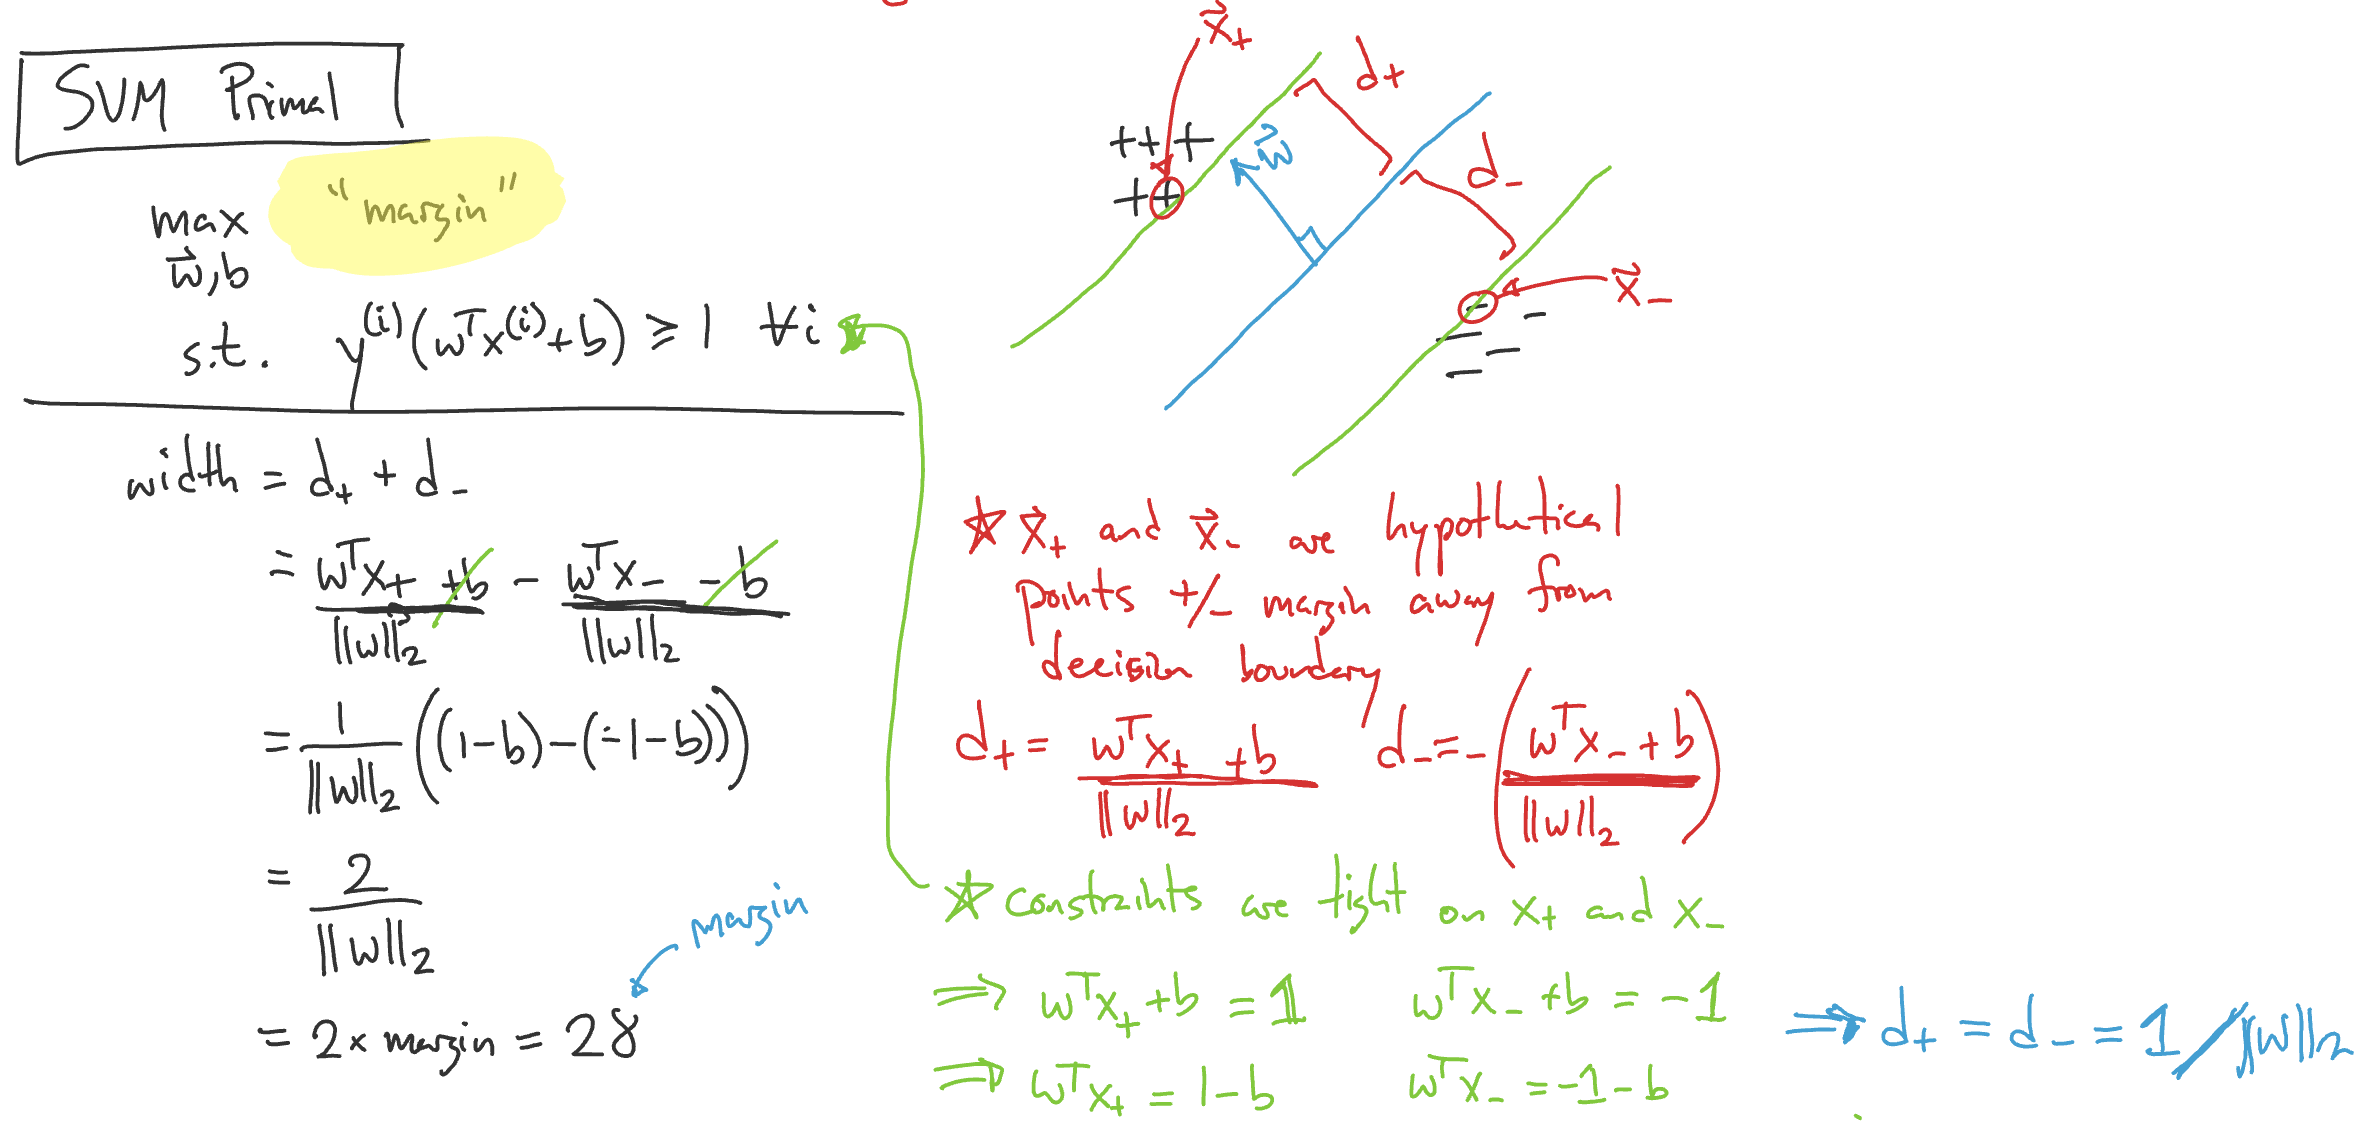 SVM Primal
max "margin"
w⃗,b
s.t. y^(i)(w^T x^(i)+b) ≥ 1 ∀i
width = d₊ + d₋
= (w^T x₊ +b)/||w||₂ - (w^T x₋ - b)/||w||₂
= 1/||w||₂ ((1-b)-(-1-b))
= 2/||w||₂
margin
= 2 x margin = 2γ
x⃗₊
d₊
w⃗
d₋
x⃗₋
+++
++
☆ x⃗₊ and x⃗₋ are hypothetical
points +/- margin away from
decision boundary
d₊ = (w^T x₊ +b)/||w||₂ d₋ = -((w^T x₋ + b)/||w||₂)
☆ constraints are tight on x₊ and x₋
⇒ w^T x₊ +b = 1 w^T x₋ +b = -1 ⇒ d₊ = d₋ = 1/||w||₂
⇒ w^T x₊ = 1-b w^T x₋ = -1-b